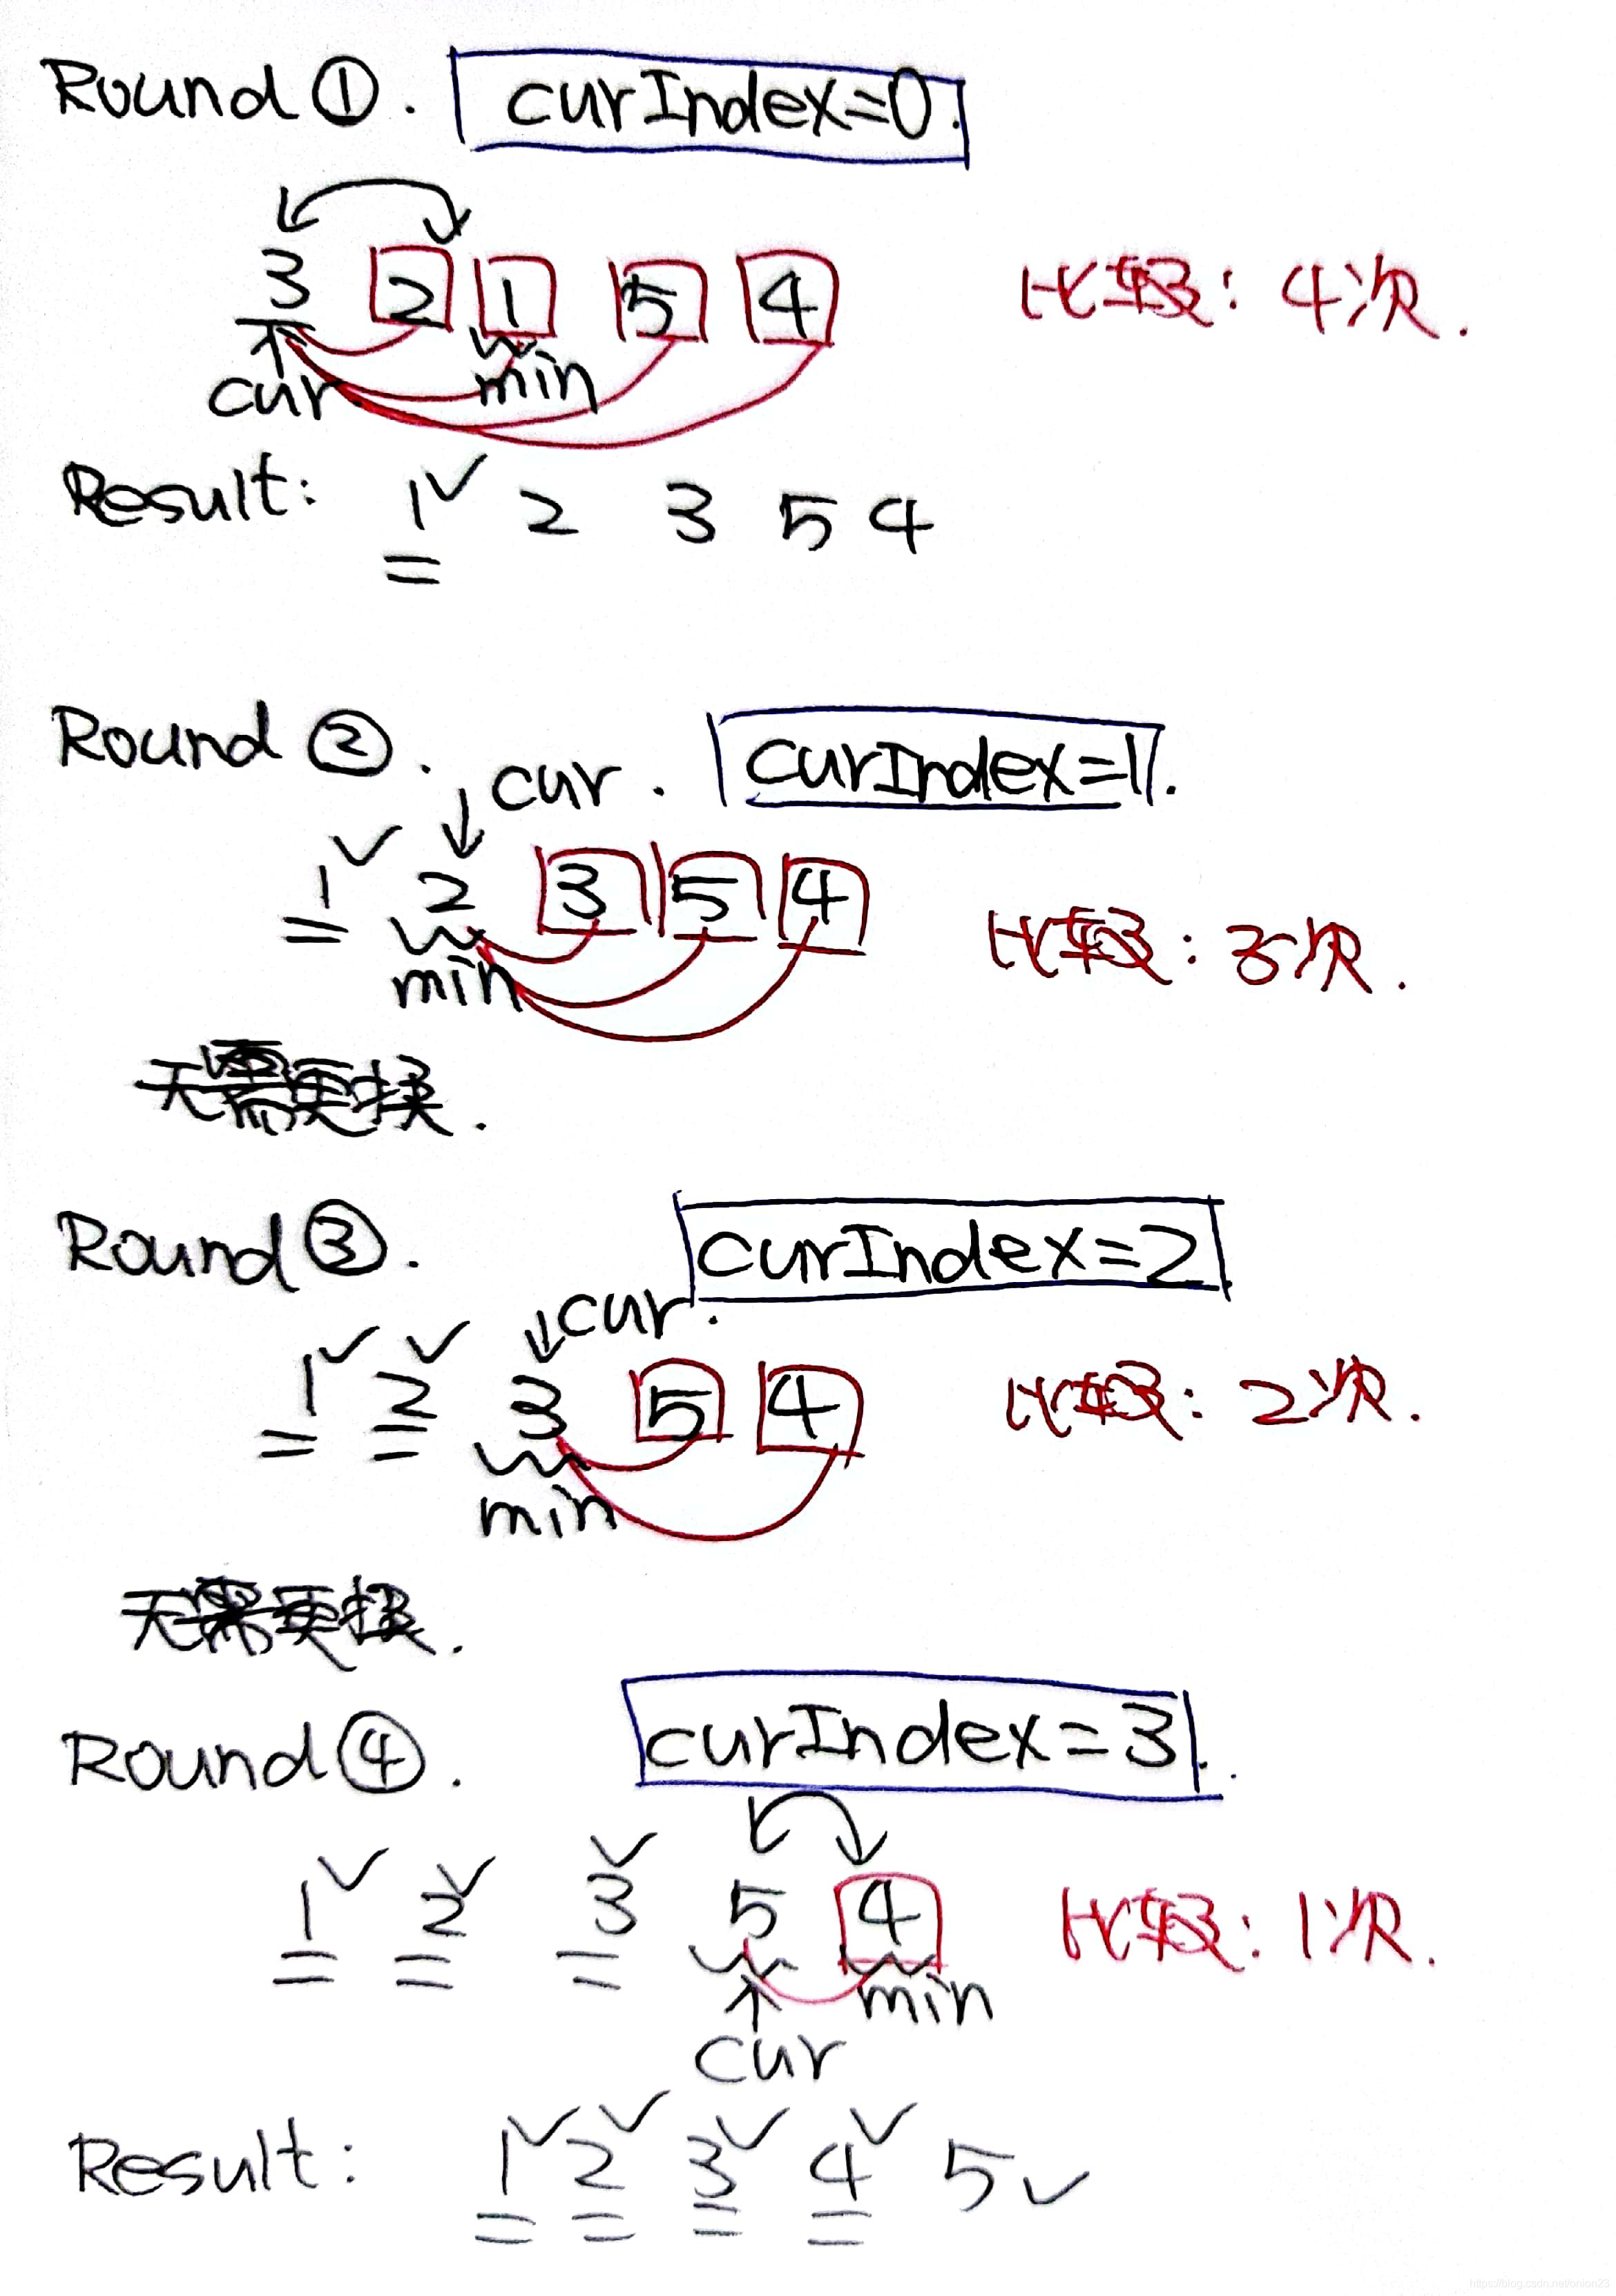 Round ①. curIndex=0.
3 2 1 5 4 比较: 4次.
cur min
Result: 1 2 3 5 4
Round ②. cur. curIndex=1.
1 2 3 5 4
min 比较: 3次.
无需更换.
Round ③. curIndex=2
cur.
1 2 3 5 4 比较: 2次.
min
无需更换.
Round ④. curIndex=3.
1 2 3 5 4 比较: 1次.
min
cur
Result: 1 2 3 4 5
https://blog.csdn.net/onion23